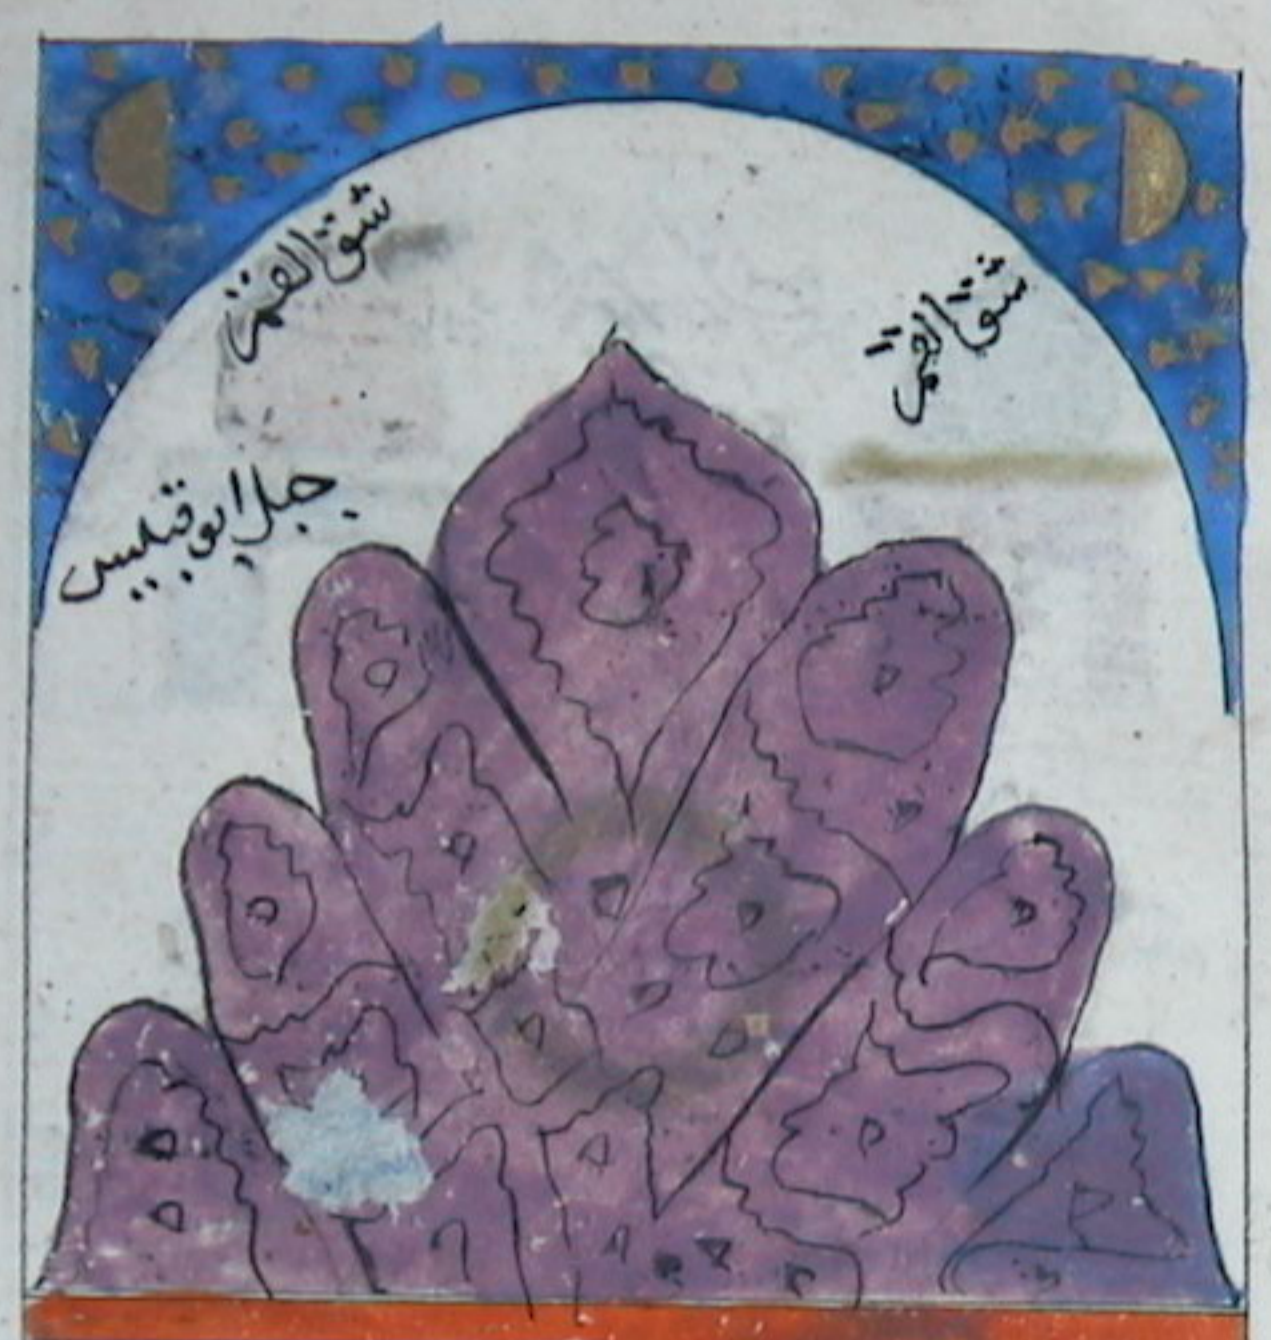 شق القمر
شق القمر
جبل ابو قبيس